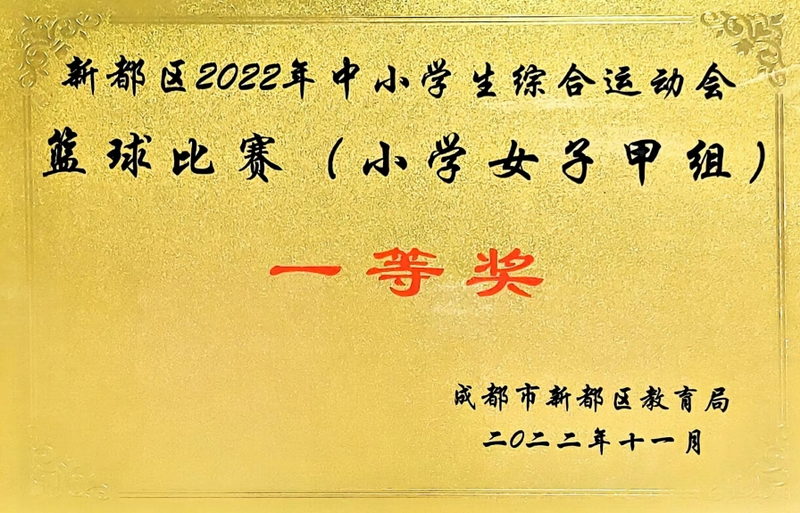 新都区2022年中小学生综合运动会
篮球比赛（小学女子甲组）
一等奖
成都市新都区教育局
二〇二二年十一月